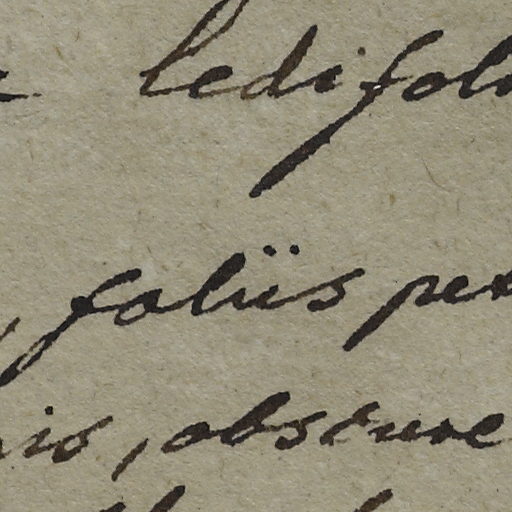 ledifol
, foliis pet
is, obscure